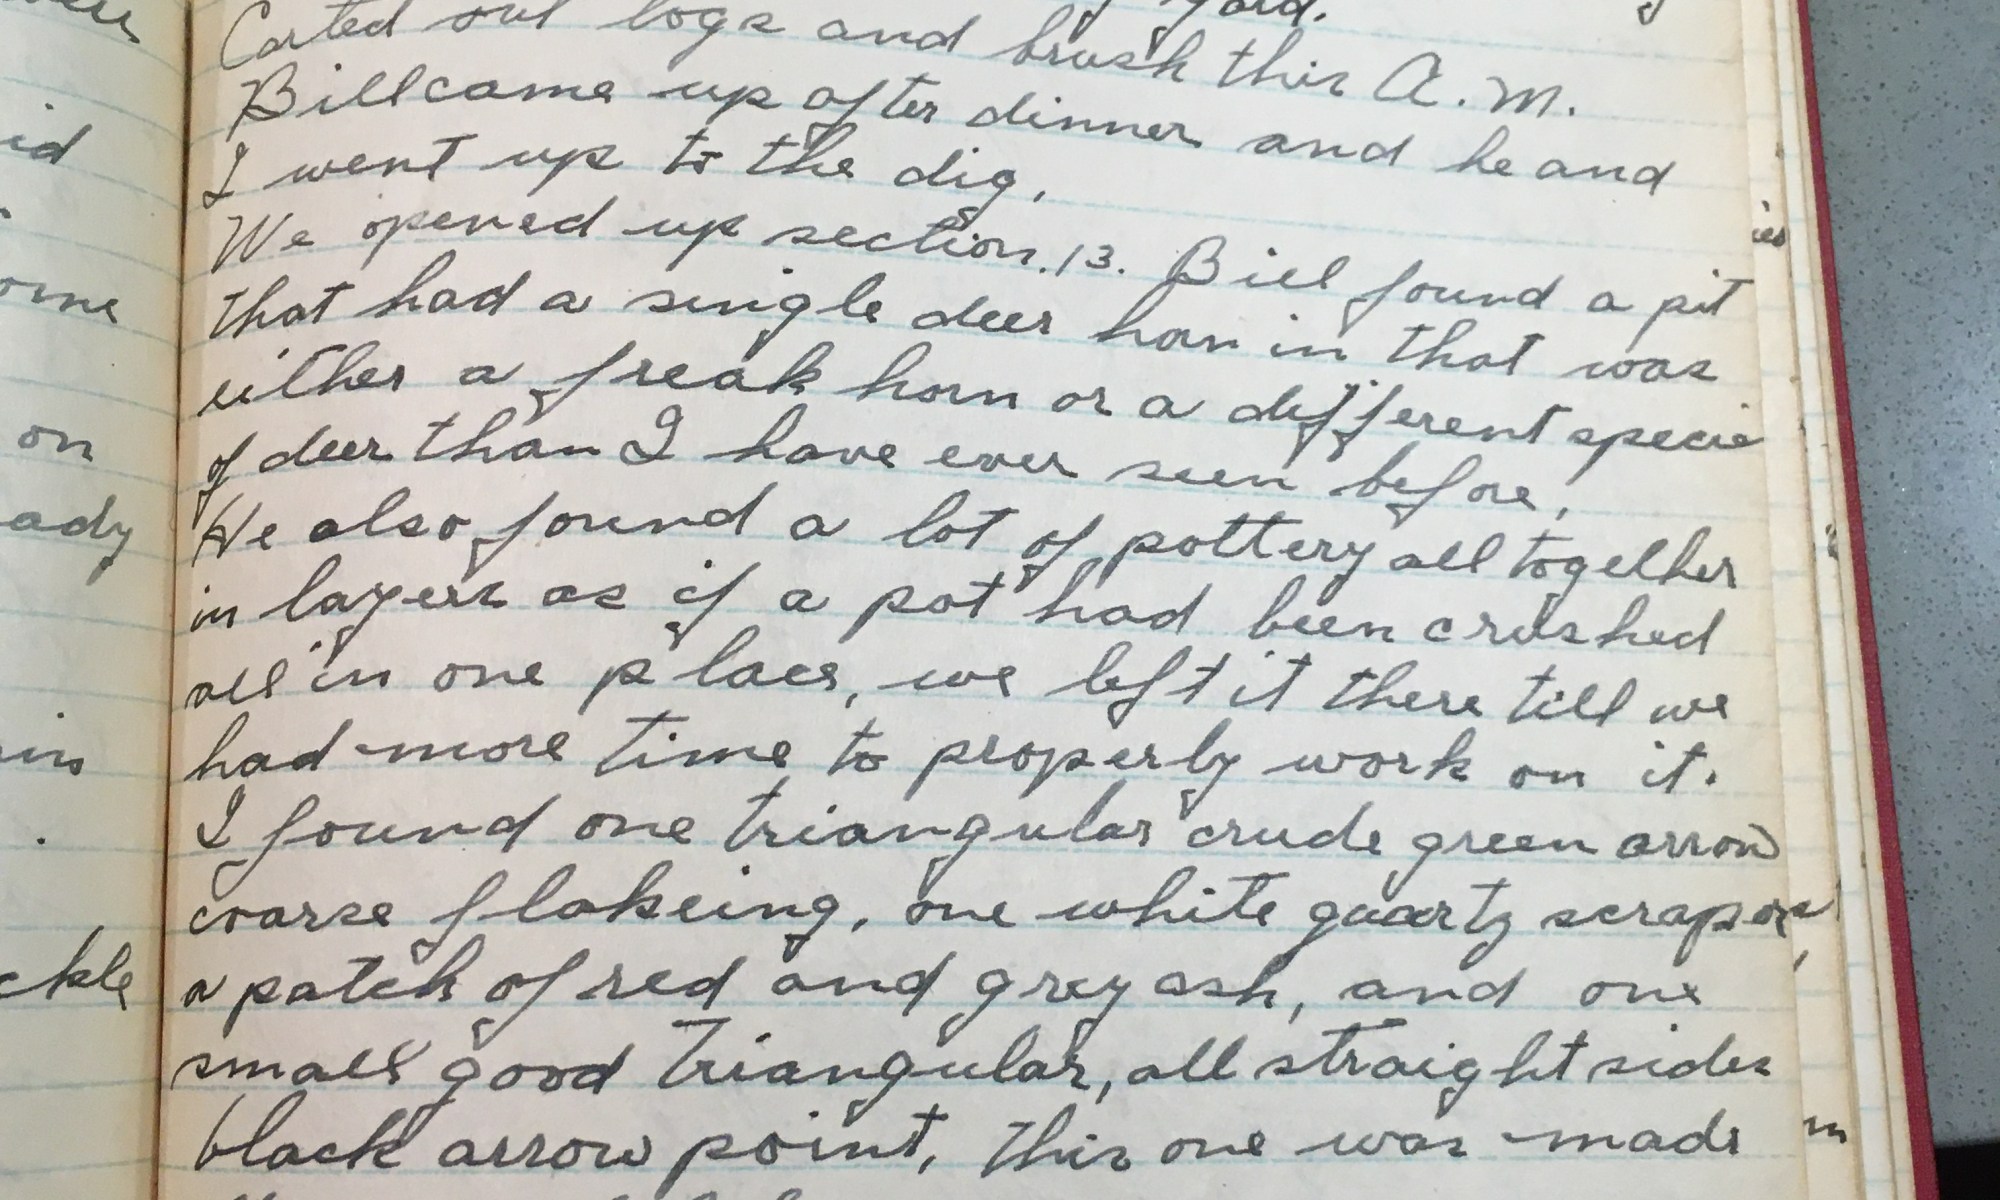 yard.
Carted out logs and brush this A.M.
Bill came up after dinner and he and
I went up to the dig.
We opened up section. 13. Bill found a pit
that had a single deer horn in that was
either a freak horn or a different specie
of deer than I have ever seen before.
He also found a lot of pottery all together
in layers as if a pot had been crushed
all in one place, we left it there till we
had more time to properly work on it.
I found one triangular crude green arrow
coarse flakeing, one white quartz scraper,
a patch of red and grey ash, and one
small good triangular, all straight sides
black arrow point, this one was made
id
on
ady